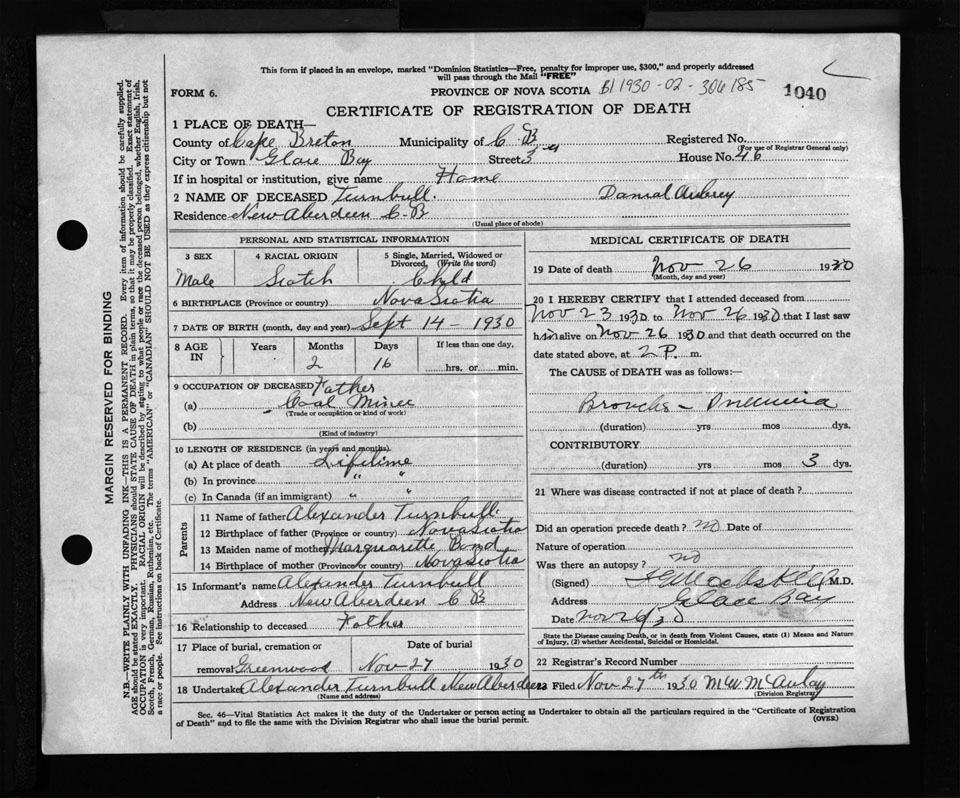 This form if placed in an envelope, marked "Dominion Statistics—Free, penalty for improper use, $300," and properly addressed
will pass through the Mail "FREE"
FORM 6.
PROVINCE OF NOVA SCOTIA B11930-02-306185
1040
CERTIFICATE OF REGISTRATION OF DEATH
1 PLACE OF DEATH—
County of Cape Breton Municipality of C B Registered No.
(For use of Registrar General only)
City or Town Glace Bay Street 3rd House No. 46
If in hospital or institution, give name Home
2 NAME OF DECEASED Turnbull. Danial Aubrey
Residence New Aberdeen C-B
(Usual place of abode)
PERSONAL AND STATISTICAL INFORMATION
3 SEX
Male
4 RACIAL ORIGIN
Scotch
5 Single, Married, Widowed or
Divorced, (Write the word)
Child
6 BIRTHPLACE (Province or country) Nova Scotia
7 DATE OF BIRTH (month, day and year) Sept 14 - 1930
8 AGE
IN
Years Months Days If less than one day,
2 16 hrs. or min.
9 OCCUPATION OF DECEASED Father
(a) Coal Miner
(Trade or occupation or kind of work)
(b)
(Kind of industry)
10 LENGTH OF RESIDENCE (in years and months)
(a) At place of death Lifetime
(b) In province " "
(c) In Canada (if an immigrant) " "
Parents
11 Name of father Alexander Turnbull.
12 Birthplace of father (Province or country) Nova Scotia
13 Maiden name of mother Marguarette Bond
14 Birthplace of mother (Province or country) Nova Scotia
15 Informant's name Alexander Turnbull
Address New Aberdeen C B
16 Relationship to deceased Father
17 Place of burial, cremation or Date of burial
removal Greenwood Nov-27 1930
18 Undertaker Alexander Turnbull New Aberdeen
(Name and address)
MEDICAL CERTIFICATE OF DEATH
19 Date of death Nov-26 1930
(Month, day and year)
20 I HEREBY CERTIFY that I attended deceased from
Nov 23 1930 to Nov 26 1930 that I last saw
him alive on Nov 26 1930 and that death occurred on the
date stated above, at 2 P. m.
The CAUSE of DEATH was as follows:—
Broncho-Pneumonia
(duration) yrs mos dys.
CONTRIBUTORY
(duration) yrs mos 3 dys.
21 Where was disease contracted if not at place of death?
Did an operation precede death? no Date of
Nature of operation
Was there an autopsy? no
(Signed) M.D.
Address Glace Bay
Date Nov 26/30
State the Disease causing Death, or in death from Violent Causes, state (1) Means and Nature
of Injury, (2) whether Accidental, Suicidal or Homicidal.
22 Registrar's Record Number
23 Filed Nov-27th 1930 M W McAulay
(Division Registrar)
Sec. 46—Vital Statistics Act makes it the duty of the Undertaker or person acting as Undertaker to obtain all the particulars required in the "Certificate of Registration
of Death" and to file the same with the Division Registrar who shall issue the burial permit.
(OVER)
MARGIN RESERVED FOR BINDING
N.B.—WRITE PLAINLY WITH UNFADING INK—THIS IS A PERMANENT RECORD. Every item of information should be carefully supplied.
AGE should be stated EXACTLY. PHYSICIANS should STATE CAUSE OF DEATH in plain terms, so that it may be properly classified. Exact statement of
OCCUPATION is very important. RACIAL ORIGIN will be described by stating to what people or race the deceased person belonged, whether English, Irish,
Scotch, French, German, Russian, Ruthenian, etc. The terms "AMERICAN" or "CANADIAN" SHOULD NOT BE USED as they express citizenship but not
a race or people. See instructions on back of Certificate.